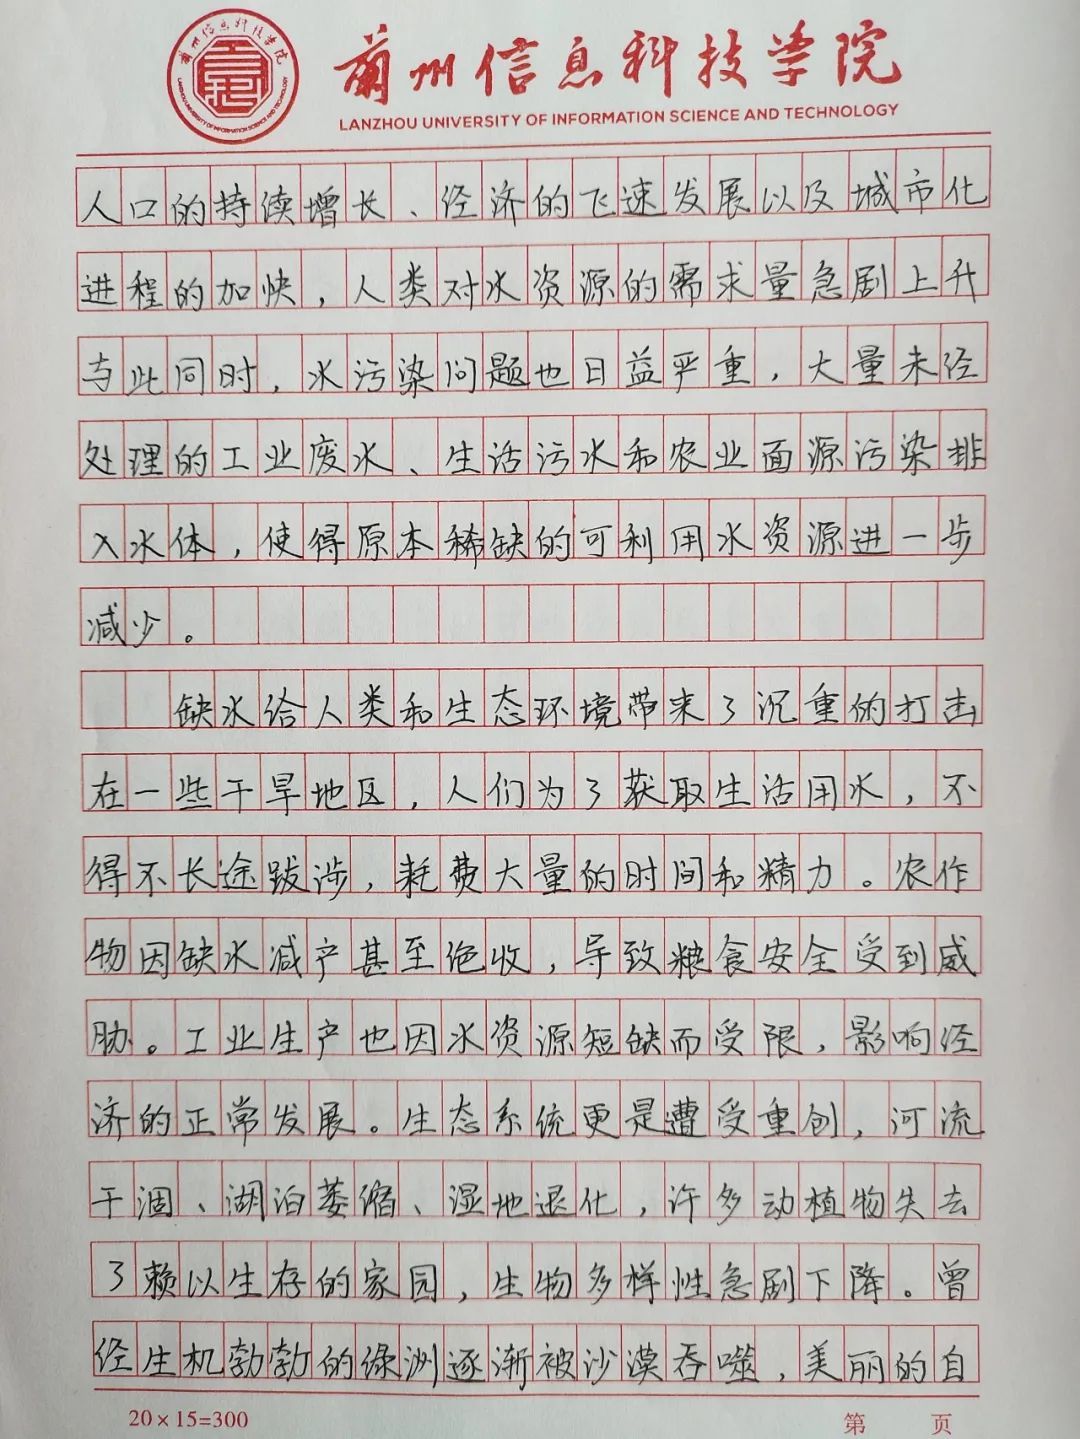 兰州信息科技学院
兰州信息科技学院
LANZHOU UNIVERSITY OF INFORMATION SCIENCE AND TECHNOLOGY
LANZHOU UNIVERSITY OF INFORMATION SCIENCE AND TECHNOLOGY
人口的持续增长、经济的飞速发展以及城市化
进程的加快，人类对水资源的需求量急剧上升
与此同时，水污染问题也日益严重，大量未经
处理的工业废水、生活污水和农业面源污染排
入水体，使得原本稀缺的可利用水资源进一步
减少。
缺水给人类和生态环境带来了沉重的打击
在一些干旱地区，人们为了获取生活用水，不
得不长途跋涉，耗费大量的时间和精力。农作
物因缺水减产甚至绝收，导致粮食安全受到威
胁。工业生产也因水资源短缺而受限，影响经
济的正常发展。生态系统更是遭受重创，河流
干涸、湖泊萎缩、湿地退化，许多动植物失去
了赖以生存的家园，生物多样性急剧下降。曾
经生机勃勃的绿洲逐渐被沙漠吞噬，美丽的自
20×15=300
第 页